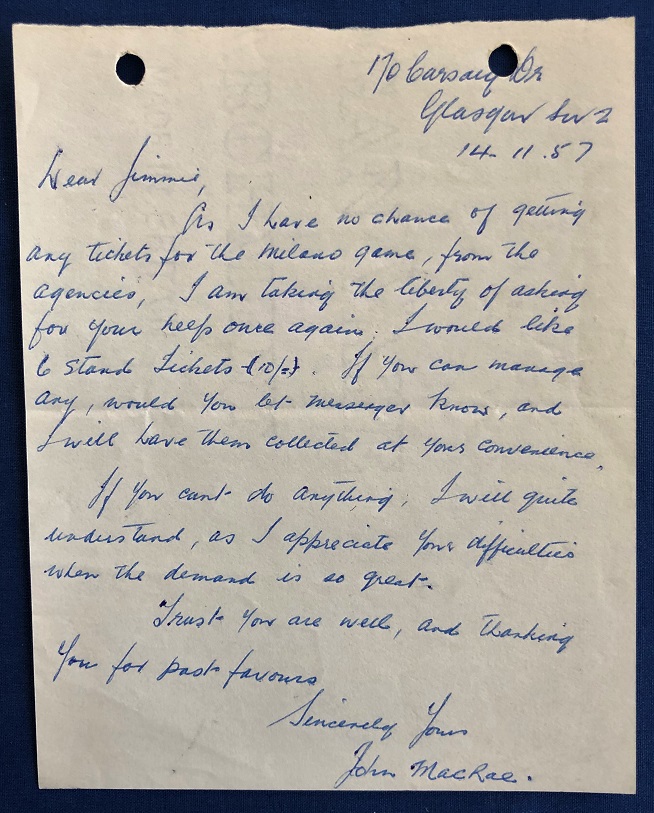 170 Carsaig Dr
Glasgow SW2
14.11.57
Dear Jimmie,
As I have no chance of getting
any tickets for the Milano game, from the
agencies, I am taking the liberty of asking
for your help once again. I would like
6 Stand Tickets (10/=). If you can manage
any, would you let messenger know, and
I will have them collected at your convenience.
If you cant do anything, I will quite
understand, as I appreciate your difficulties
when the demand is so great.
Trust you are well, and thanking
you for past favours
Sincerely Yours
John MacRae.